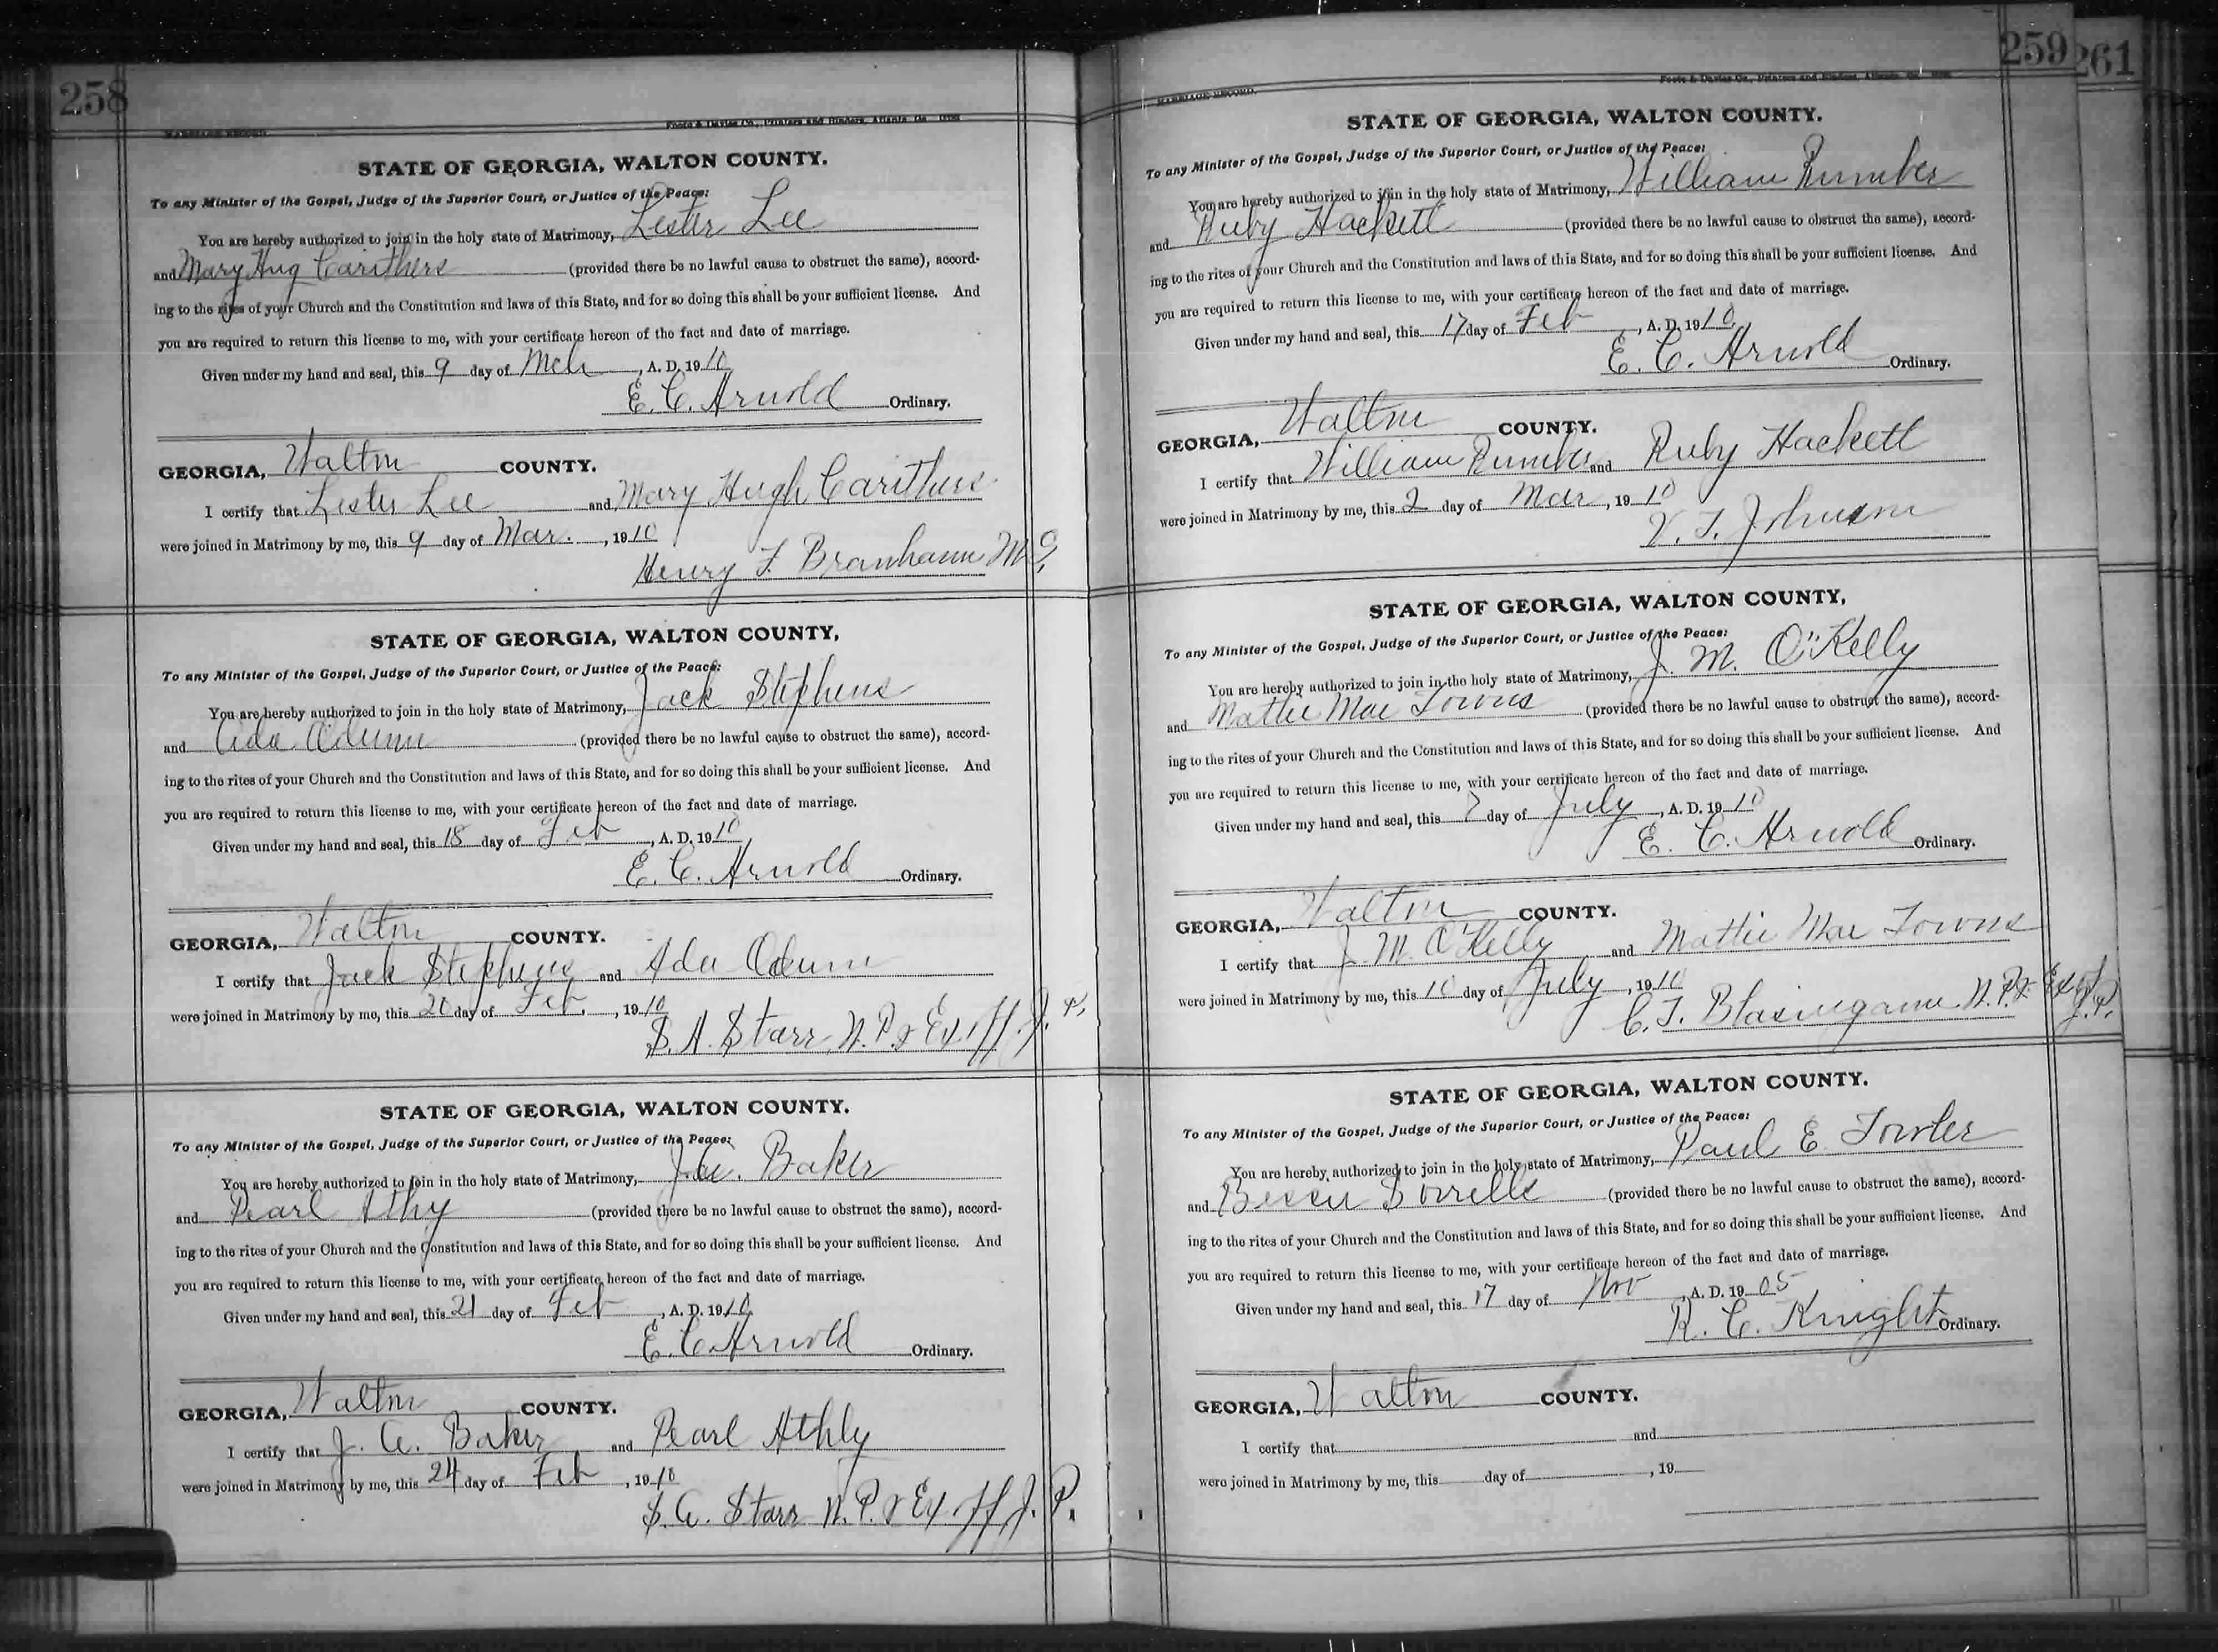 258
MARRIAGE RECORD.
Foote & Davies Co., Printers and Binders, Atlanta, Ga.
STATE OF GEORGIA, WALTON COUNTY.
To any Minister of the Gospel, Judge of the Superior Court, or Justice of the Peace:
You are hereby authorized to join in the holy state of Matrimony, Lester Lee
and Mary Hug Carithers (provided there be no lawful cause to obstruct the same), accord-
ing to the rites of your Church and the Constitution and laws of this State, and for so doing this shall be your sufficient license. And
you are required to return this license to me, with your certificate hereon of the fact and date of marriage.
Given under my hand and seal, this 9 day of Mch, A. D. 1910
E. C. Arnold Ordinary.
GEORGIA, Walton COUNTY.
I certify that Lester Lee and Mary Hugh Carithers
were joined in Matrimony by me, this 9 day of Mar., 1910
Henry F. Branham M.G.
STATE OF GEORGIA, WALTON COUNTY,
To any Minister of the Gospel, Judge of the Superior Court, or Justice of the Peace:
You are hereby authorized to join in the holy state of Matrimony, Jack Stephens
and Ada Odum (provided there be no lawful cause to obstruct the same), accord-
ing to the rites of your Church and the Constitution and laws of this State, and for so doing this shall be your sufficient license. And
you are required to return this license to me, with your certificate hereon of the fact and date of marriage.
Given under my hand and seal, this 18 day of Feb, A. D. 1910
E. C. Arnold Ordinary.
GEORGIA, Walton COUNTY.
I certify that Jack Stephens and Ada Odum
were joined in Matrimony by me, this 20 day of Feb., 1910
S. A. Starr N.P. & Ex off J. P.
STATE OF GEORGIA, WALTON COUNTY.
To any Minister of the Gospel, Judge of the Superior Court, or Justice of the Peace:
You are hereby authorized to join in the holy state of Matrimony, J. A. Baker
and Pearl Athy (provided there be no lawful cause to obstruct the same), accord-
ing to the rites of your Church and the Constitution and laws of this State, and for so doing this shall be your sufficient license. And
you are required to return this license to me, with your certificate hereon of the fact and date of marriage.
Given under my hand and seal, this 21 day of Feb, A. D. 1910
E. C. Arnold Ordinary.
GEORGIA, Walton COUNTY.
I certify that J. A. Baker and Pearl Athly
were joined in Matrimony by me, this 24 day of Feb, 1910
S. A. Starr N. P. & Ex off J. P.
259
261
MARRIAGE RECORD.
Foote & Davies Co., Printers and Binders, Atlanta, Ga.
STATE OF GEORGIA, WALTON COUNTY.
To any Minister of the Gospel, Judge of the Superior Court, or Justice of the Peace:
You are hereby authorized to join in the holy state of Matrimony, William Rumber
and Ruby Hackett (provided there be no lawful cause to obstruct the same), accord-
ing to the rites of your Church and the Constitution and laws of this State, and for so doing this shall be your sufficient license. And
you are required to return this license to me, with your certificate hereon of the fact and date of marriage.
Given under my hand and seal, this 17 day of Feb, A. D. 1910.
E. C. Arnold Ordinary.
GEORGIA, Walton COUNTY.
I certify that William Rumber and Ruby Hackett
were joined in Matrimony by me, this 2 day of Mar, 1910
V. T. Johnson
STATE OF GEORGIA, WALTON COUNTY,
To any Minister of the Gospel, Judge of the Superior Court, or Justice of the Peace:
You are hereby authorized to join in the holy state of Matrimony, J. M. O'Kelly
and Mattie Mae Towns (provided there be no lawful cause to obstruct the same), accord-
ing to the rites of your Church and the Constitution and laws of this State, and for so doing this shall be your sufficient license. And
you are required to return this license to me, with your certificate hereon of the fact and date of marriage.
Given under my hand and seal, this 7 day of July, A. D. 1910
E. C. Arnold Ordinary.
GEORGIA, Walton COUNTY.
I certify that J. M. O'Kelly and Mattie Mae Towns
were joined in Matrimony by me, this 10 day of July, 1910
C. T. Blasingame N.P. & Ex off J.P.
STATE OF GEORGIA, WALTON COUNTY.
To any Minister of the Gospel, Judge of the Superior Court, or Justice of the Peace:
You are hereby authorized to join in the holy state of Matrimony, Paul E. Fowler
and Sorrells (provided there be no lawful cause to obstruct the same), accord-
ing to the rites of your Church and the Constitution and laws of this State, and for so doing this shall be your sufficient license. And
you are required to return this license to me, with your certificate hereon of the fact and date of marriage.
Given under my hand and seal, this 17 day of Nov, A. D. 1905
R. C. Knight Ordinary.
GEORGIA, Walton COUNTY.
I certify that and
were joined in Matrimony by me, this day of , 19